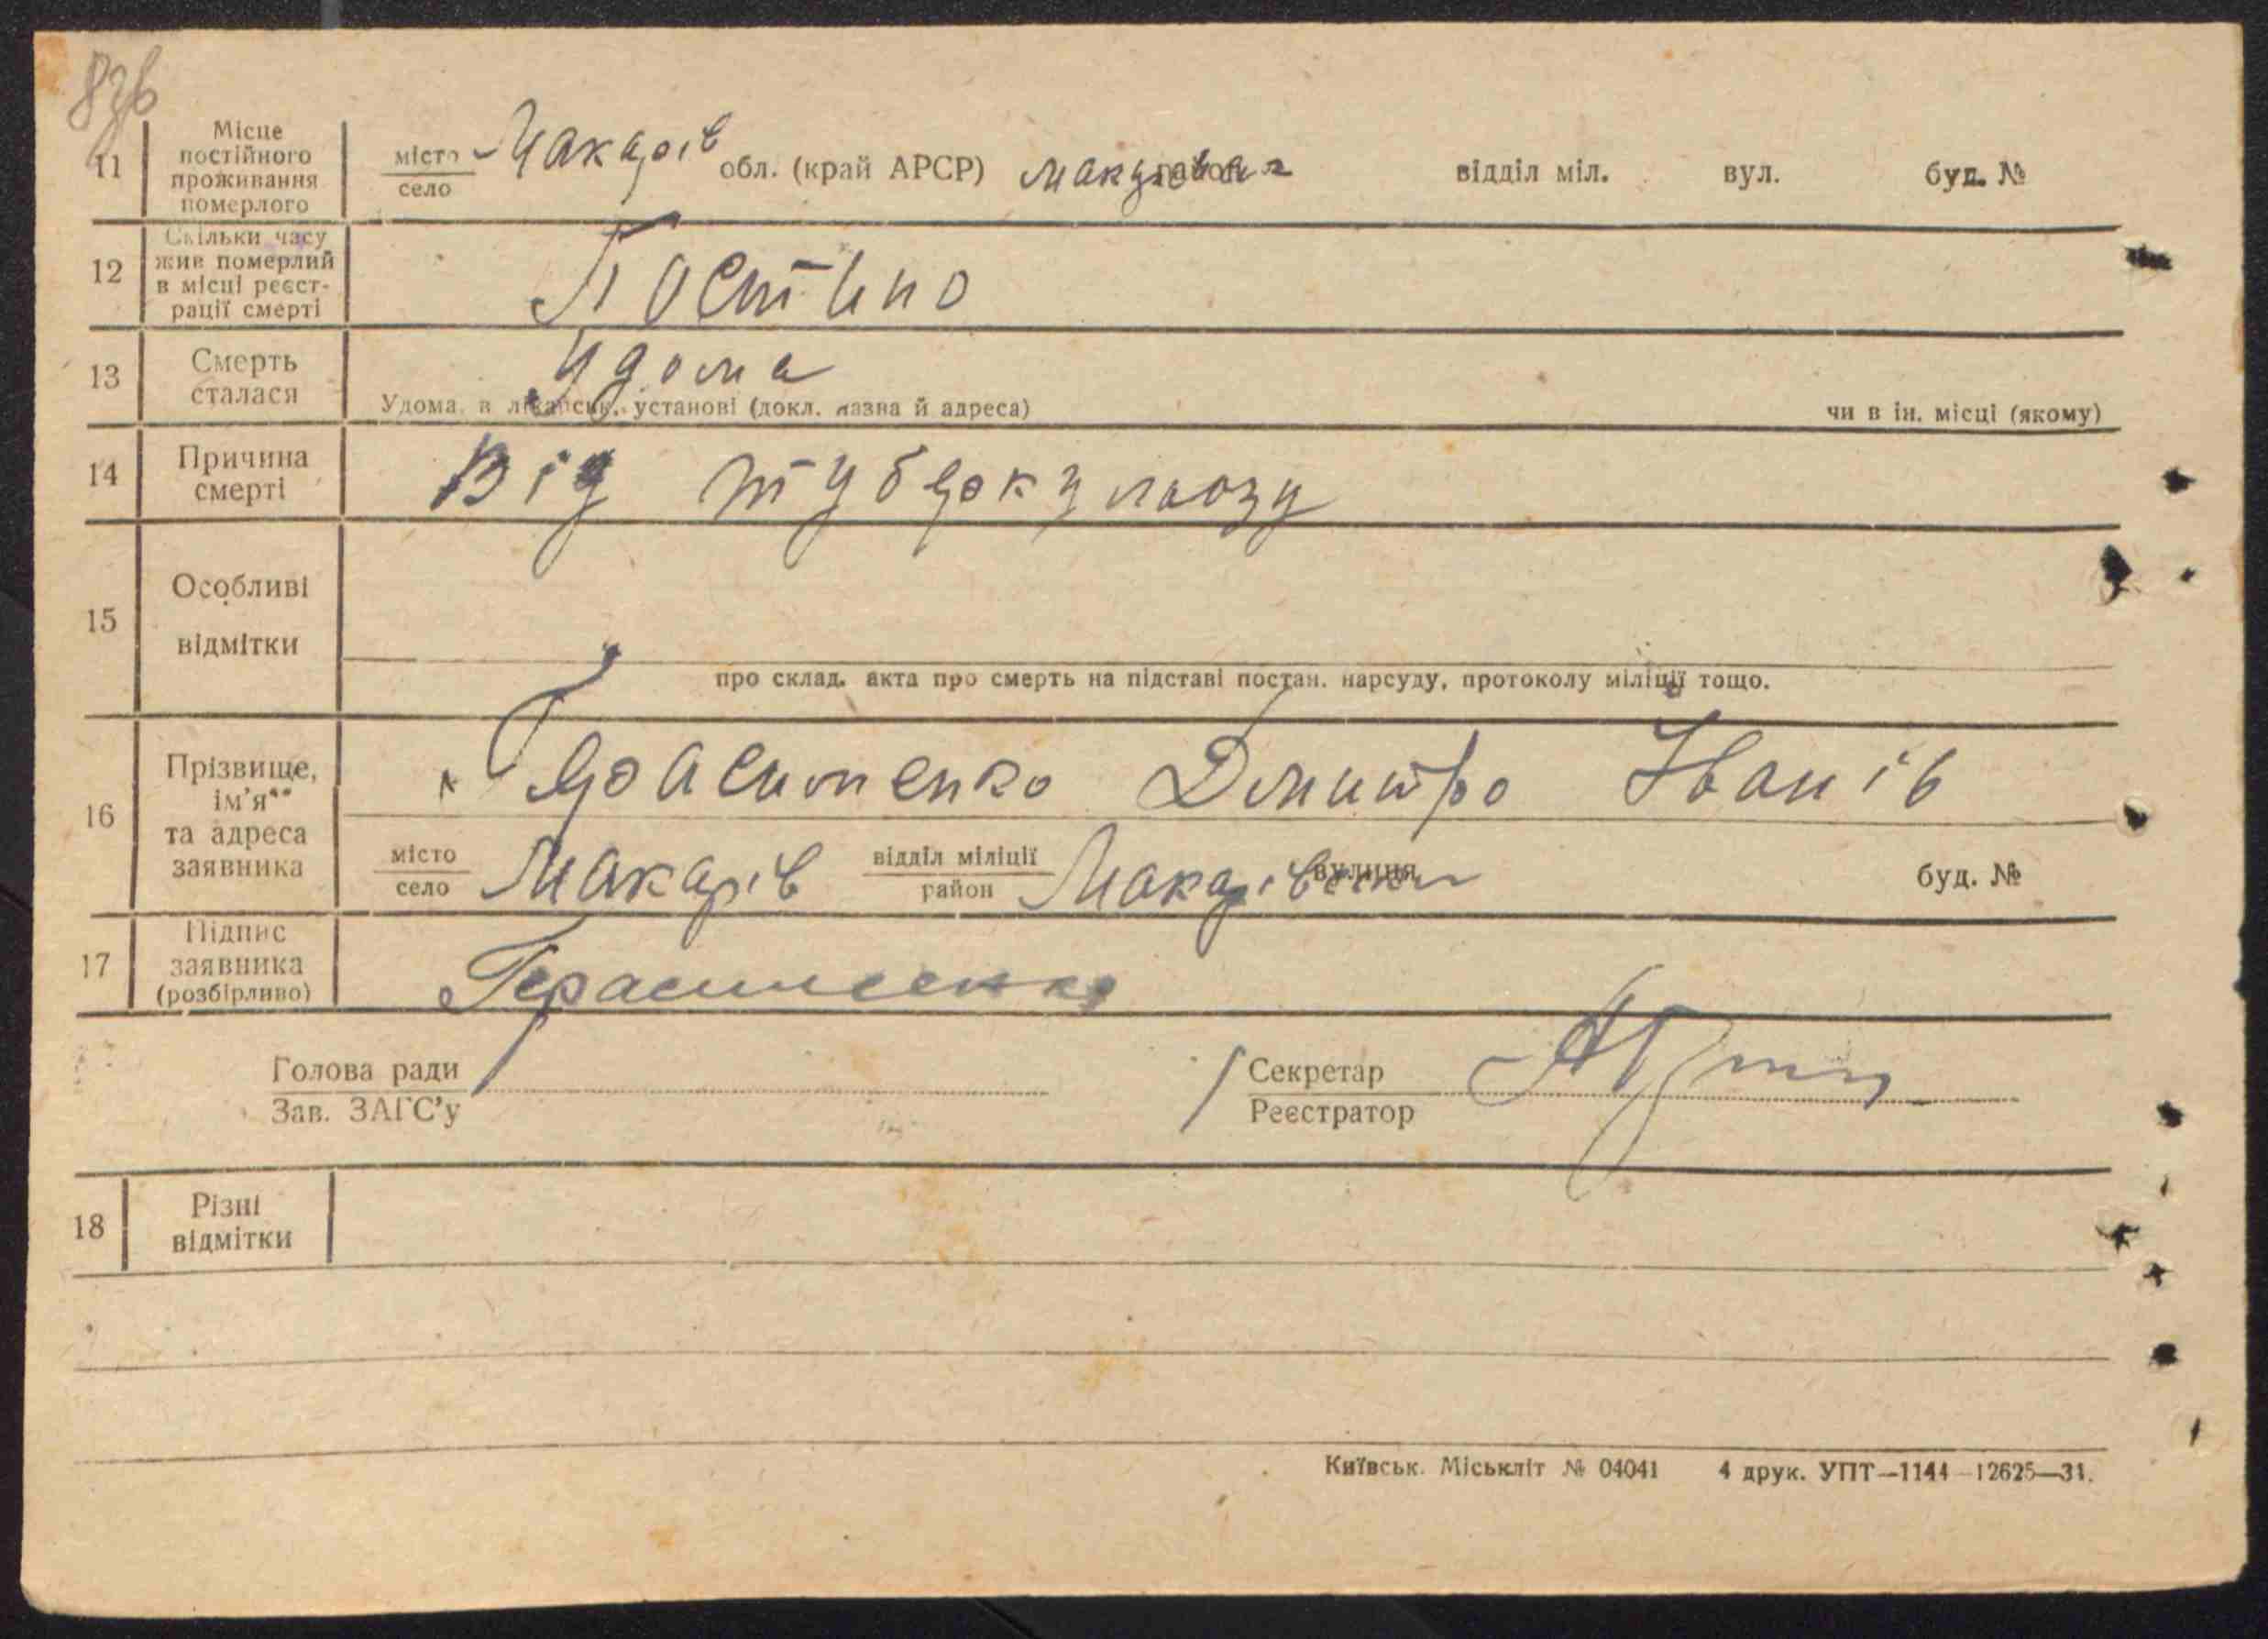 11
Місце
постійного
проживання
померлого
місто Макарів обл. (край АРСР) район відділ міл. вул. буд. №
село
12
Скільки часу
жив померлий
в місці реєст-
рації смерті
Постіно
13
Смерть
сталася
Удома
Удома, в лікарськ. установі (докл. назва й адреса) чи в ін. місці (якому)
14
Причина
смерті
Від туберкульозу
15
Особливі
відмітки
про склад. акта про смерть на підставі постан. нарсуду, протоколу міліції тощо.
16
Прізвище,
ім'я**
та адреса
заявника
Герасименко Дмитро Іванів
місто Макарів відділ міліції Макарівськи вулиця буд. №
село район
17
Підпис
заявника
(розбірливо)
Герасименко
Голова ради Секретар
Зав. ЗАГС'у Реєстратор
18
Різні
відмітки
Київськ. Міськліт № 04041 4 друк. УПТ—1144—12625—31.